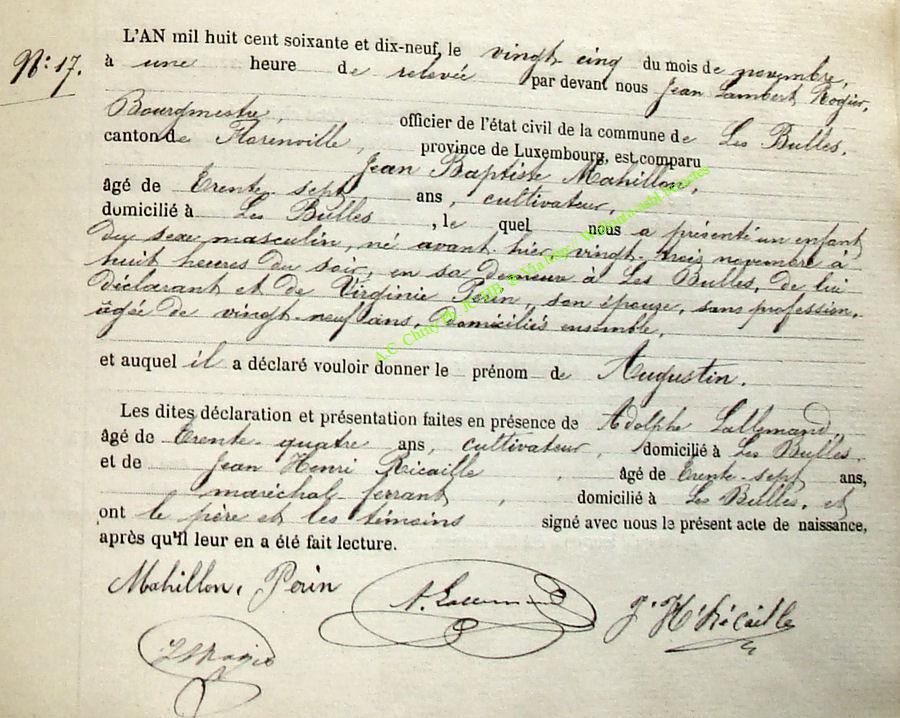 L'AN mil huit cent soixante et dix-neuf, le vingt cinq du mois de novembre,
N: 17.
à une heure de relevée par devant nous Jean Lambert Rogier,
Bourgmestre, officier de l'état civil de la commune de Les Bulles,
canton de Florenville, province de Luxembourg, est comparu
Jean Baptiste Mahillon,
âgé de trente-sept ans, cultivateur,
domicilié à Les Bulles, le quel nous a présenté un enfant
du sexe masculin, né avant hier vingt-trois novembre à
huit heures du soir, en sa demeure à Les Bulles, de lui
déclarant et de Virginie Perin, son épouse, sans profession,
âgée de vingt-neuf ans, domiciliés ensemble,
et auquel il a déclaré vouloir donner le prénom de Augustin.
Les dites déclaration et présentation faites en présence de Adolphe Lallemand,
âgé de trente-quatre ans, cultivateur, domicilié à Les Bulles
et de Jean Henri Ricaille, âgé de trente-sept ans,
maréchal-ferrant, domicilié à Les Bulles, et
ont le père et les témoins signé avec nous le présent acte de naissance,
après qu'il leur en a été fait lecture.
Mahillon, Perin A. Lallemand J. H. Ricaille
J L Rogier
A.C. Chiny